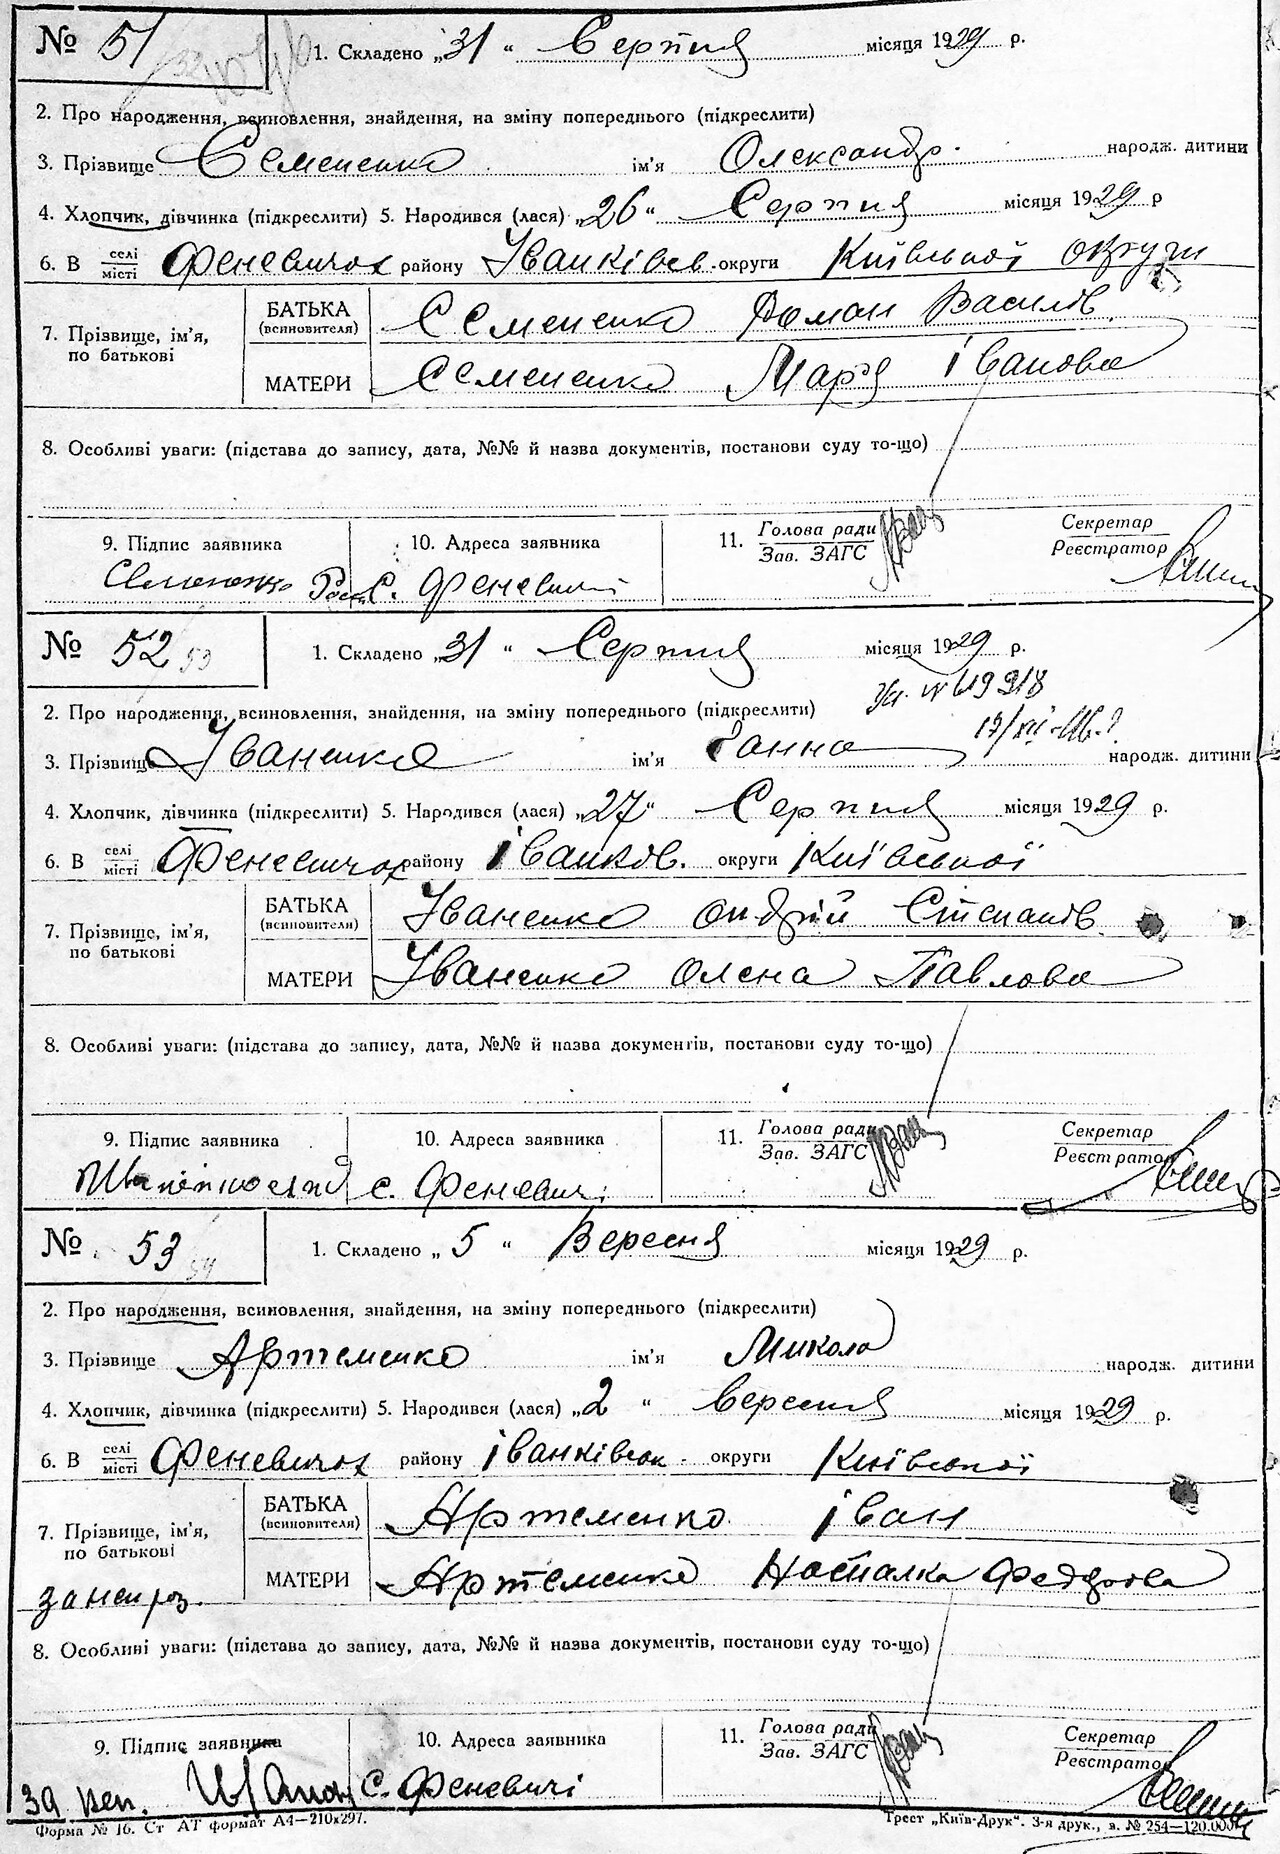 № 51 1. Складено „31“ Серпня місяця 1929 р.
2. Про народження, всиновлення, знайдення, на зміну попереднього (підкреслити)
3. Прізвище Семененко ім'я Олександр. народж. дитини
4. Хлопчик, дівчинка (підкреслити) 5. Народився (лася) „26“ Серпня місяця 1929 р
6. В селі місті Феневичах району Іванківськ. округи Київської округи
7. Прізвище, ім'я, по батькові
БАТЬКА (всиновителя) Семененко Роман Василів.
МАТЕРИ Семененко Мар'я Іванова
8. Особливі уваги: (підстава до запису, дата, №№ й назва документів, постанови суду то-що)
9. Підпис заявника 10. Адреса заявника 11. Голова ради Зав. ЗАГС Секретар Реєстратор
Семененко с. Феневичі
№ 52 53 1. Складено „31“ Серпня місяця 1929 р.
2. Про народження, всиновлення, знайдення, на зміну попереднього (підкреслити)
3. Прізвище Іваненко ім'я Ганна народж. дитини
4. Хлопчик, дівчинка (підкреслити) 5. Народився (лася) „27“ Серпня місяця 1929 р.
6. В селі місті Феневичах району Іванков. округи Київської
7. Прізвище, ім'я, по батькові
БАТЬКА (всиновителя) Іваненко Андрій Степанів.
МАТЕРИ Іваненко Олена Павлова
8. Особливі уваги: (підстава до запису, дата, №№ й назва документів, постанови суду то-що)
9. Підпис заявника 10. Адреса заявника 11. Голова ради Зав. ЗАГС Секретар Реєстратор
с. Феневичі
№ 53 54 1. Складено „5“ Вересня місяця 1929 р.
2. Про народження, всиновлення, знайдення, на зміну попереднього (підкреслити)
3. Прізвище Артеменко ім'я Микола народж. дитини
4. Хлопчик, дівчинка (підкреслити) 5. Народився (лася) „2“ вересня місяця 1929 р.
6. В селі місті Феневичах району Іванківськ. округи Київської
7. Прізвище, ім'я, по батькові
БАТЬКА (всиновителя) Артеменко Іван
МАТЕРИ Артеменко Наталка Федорова
8. Особливі уваги: (підстава до запису, дата, №№ й назва документів, постанови суду то-що)
9. Підпис заявника 10. Адреса заявника 11. Голова ради Зав. ЗАГС Секретар Реєстратор
с. Феневичі
Форма № 16. Ст АТ формат А4—210х297. Трест „Київ-Друк“. 3-я друк., з. № 254—120.000